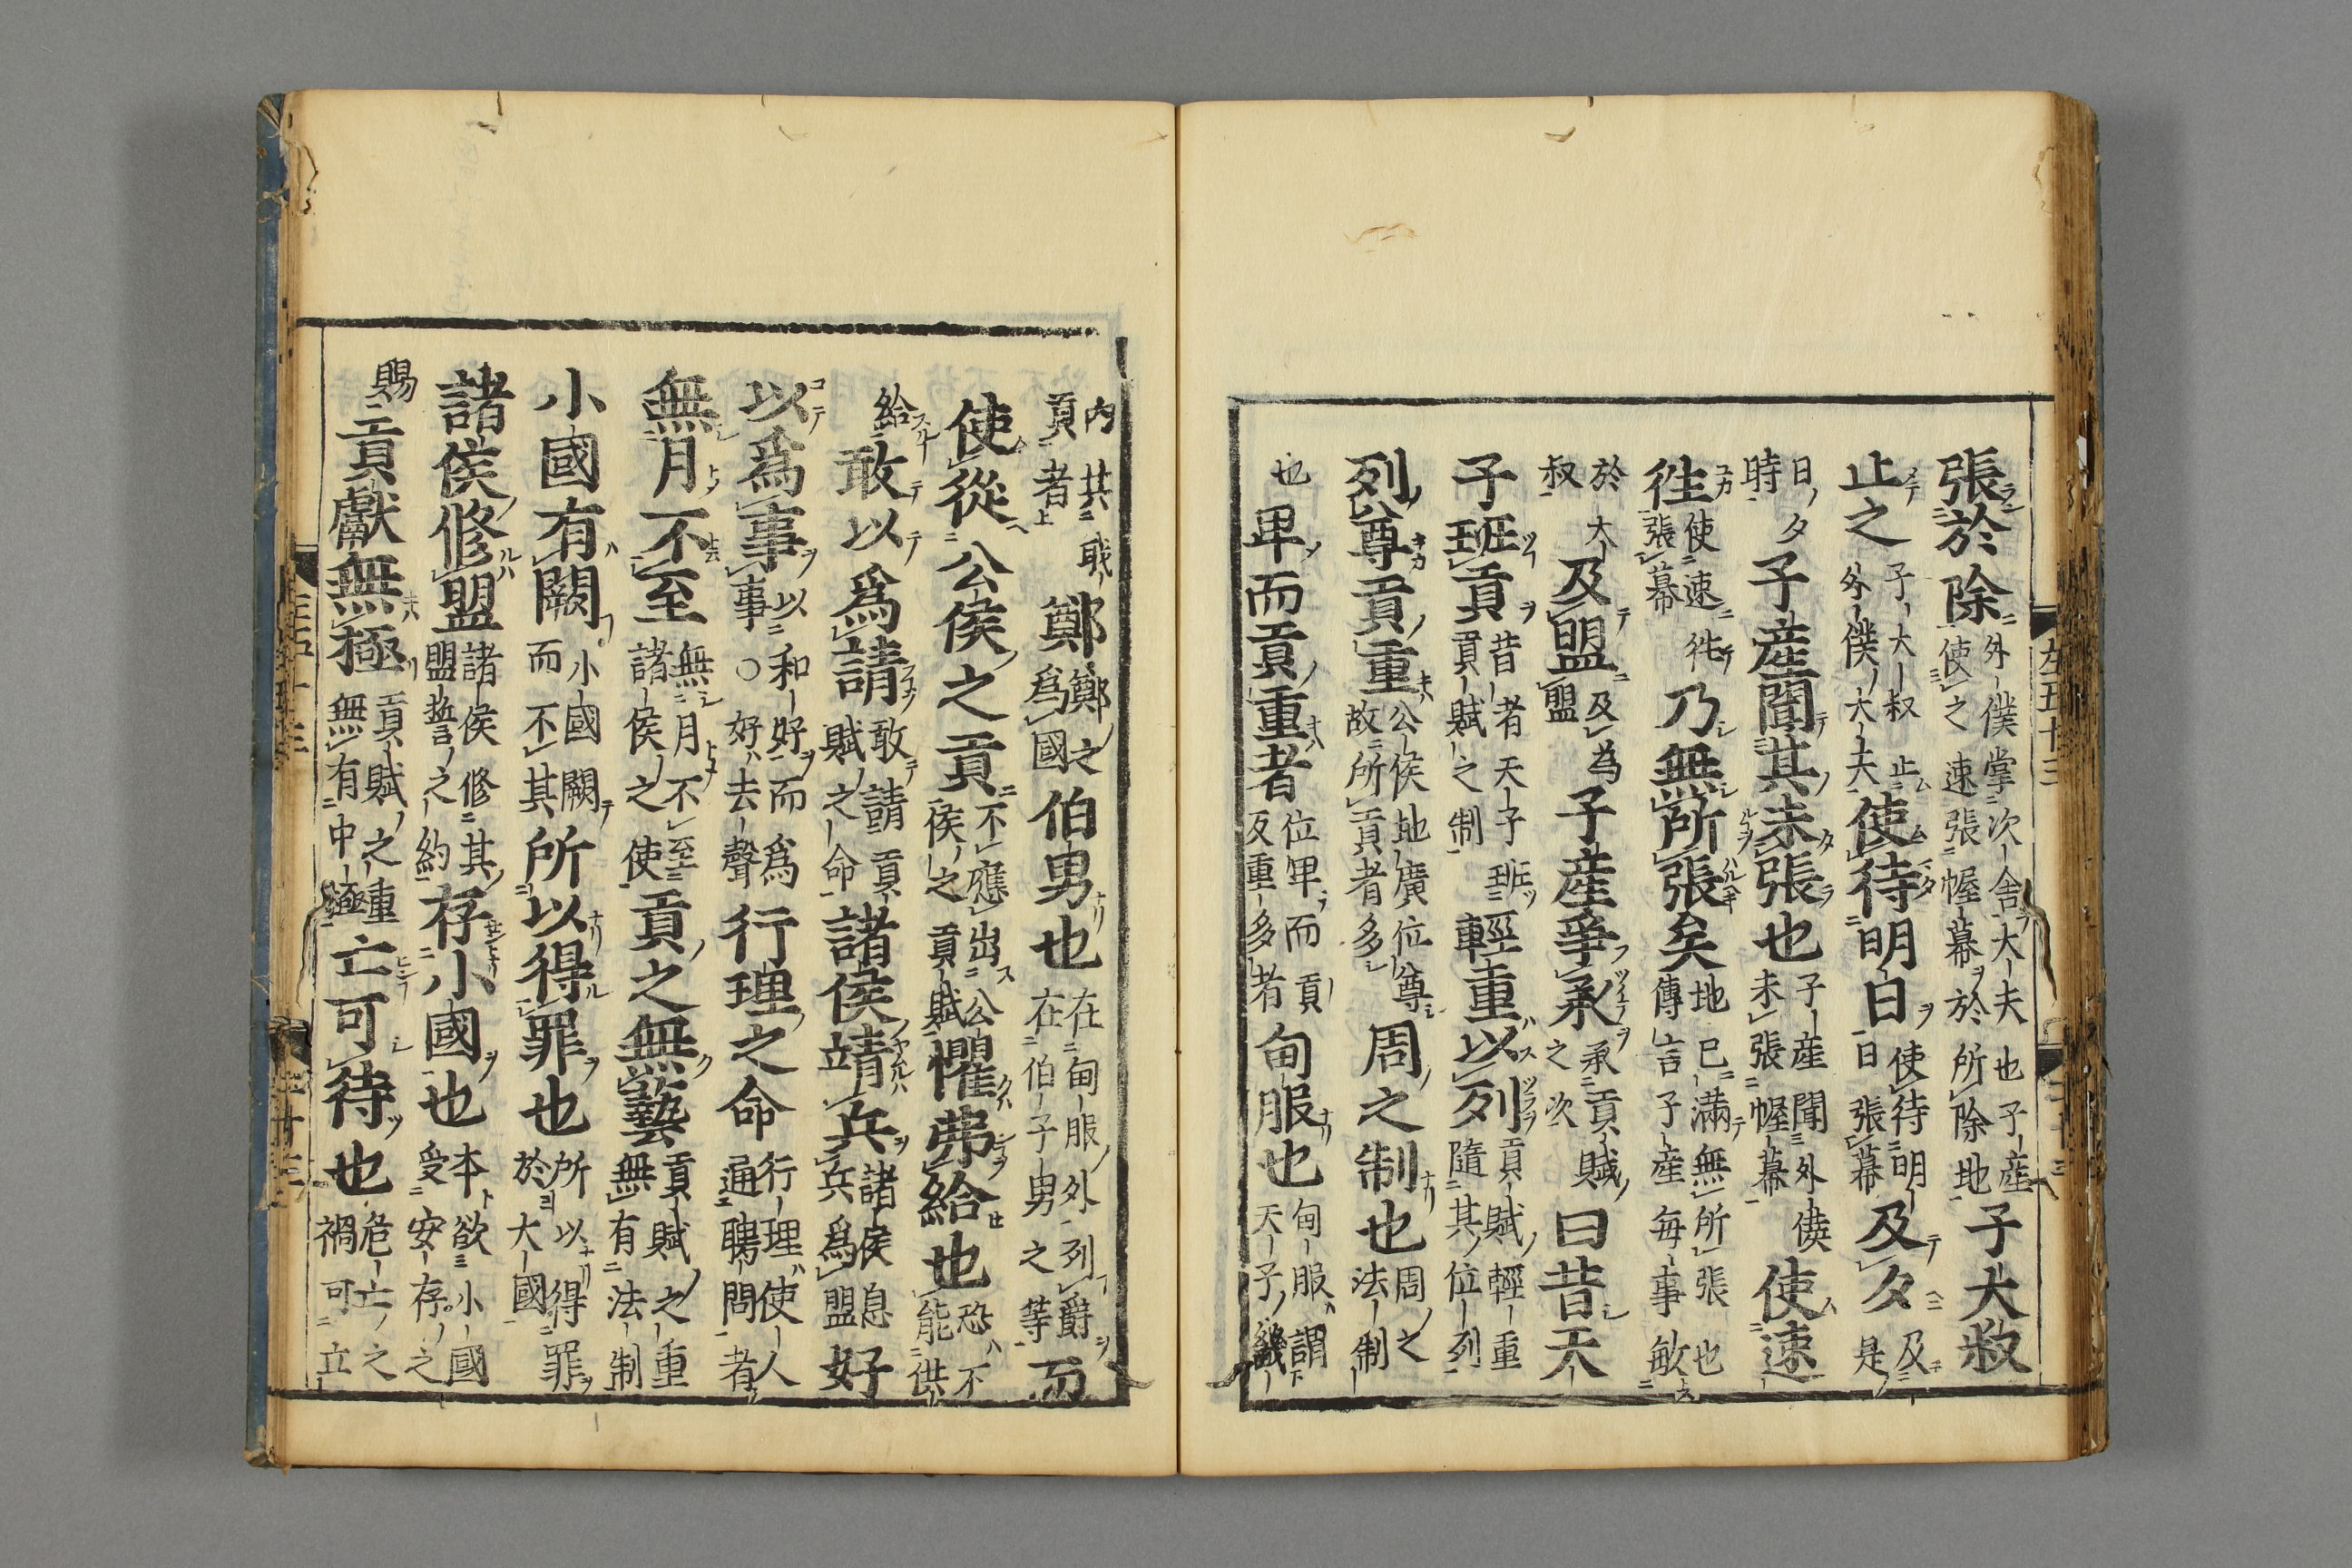 張於除外僕掌次舍大夫也子産使之速張幄幕於所除地子大叔
止之子大叔止外僕大夫使待明日使待明日張幕及夕及是
日夕時子産聞其未張也子産聞外僕未張幄幕使速
徃使速徃張幕乃無所張矣地已滿無所張也傳言子産毎事敏
於大叔及盟及為盟子産爭承承貢賦之次曰昔天
子班貢昔者天子班貢賦之制輕重以列貢賦輕重隨其位列
列尊貢重公侯地廣位尊故所貢者多周之制也周之法制
也卑而貢重者位卑而貢反重多者甸服也甸服謂天子畿
內其職貢者鄭鄭之為國伯男也在甸服外列爵在伯子男之等而
使從公侯之貢不應出公侯之貢賦懼弗給也恐不能供
給敢以爲請敢請貢賦之命諸侯靖兵諸侯息兵爲盟好
以爲事以和好而爲事○好去聲行理之命行理使人通聘問者
無月不至無月不至諸侯之使貢之無藝貢賦之重無有法制
小國有闕小國闕而不其所以得罪也所以得罪於大國
諸侯修盟諸侯修其盟誓之約存小國也本欲小國受安存之
賜貢獻無極貢賦之重無有中極亡可待也危亡之禍可立
左五十三